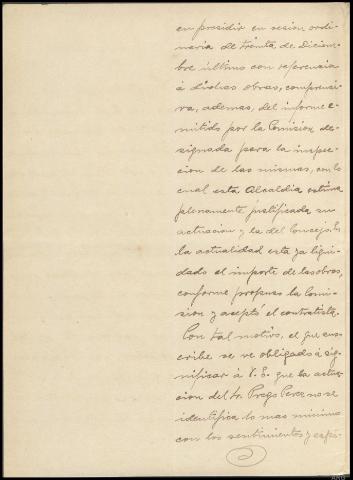 en presidir en sesion ordi-
naria de treinta de Diciem-
bre último con referencia
á dichas obras, comprensi-
va, ademas, del informe e-
mitido por la Comision de-
signada para la inspec-
cion de las mismas, con lo
cual esta Alcaldia estima
plenamente justificada su
actuacion y la del Concejo. En
la actualidad esta ya liqui-
dado el importe de las obras,
conforme propuso la Comi-
sion y aceptó el contratista.
Con tal motivo, el que sus-
cribe se ve obligado á sig-
nificar á V. E. que la actua-
cion del Sr. Prego Perez no se
identifica lo mas minimo
con los sentimientos y